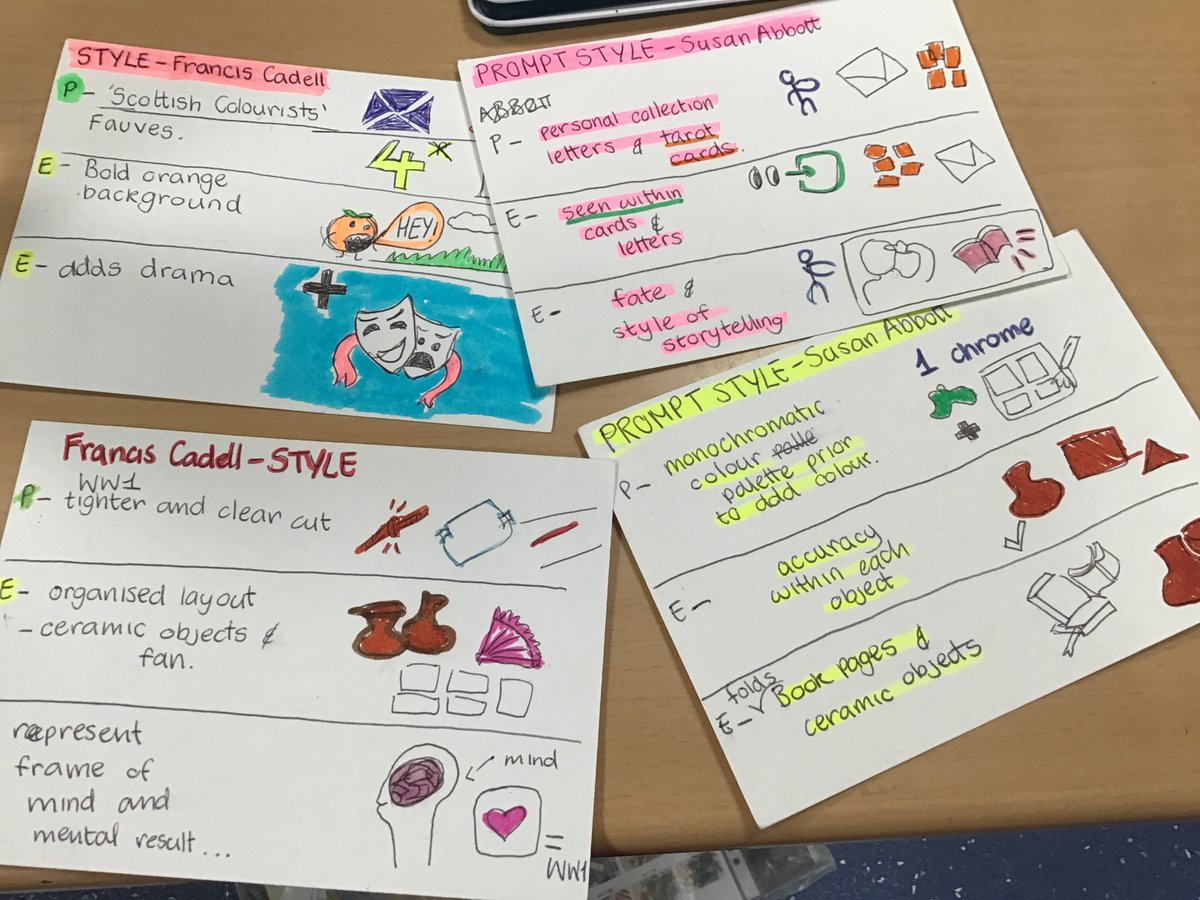 STYLE - Francis Cadell
P - 'Scottish Colourists'
Fauves.
4*
E - Bold orange
background
HEY!
E - adds drama
PROMPT STYLE - Susan Abbott
ABBOTT
P - personal collection
letters & tarot
cards.
E - seen within
cards &
letters
E - fate &
style of
storytelling
Francis Cadell - STYLE
WW1
P - tighter and clear cut
E - organised layout
- ceramic objects &
fan.
represent
frame of
mind and
mental result...
mind
= WW1
PROMPT STYLE - Susan Abbott
1 chrome
P - monochromatic
colour palle
palette prior
to add colour.
E - accuracy
within each
object
folds
E - Book pages &
ceramic objects